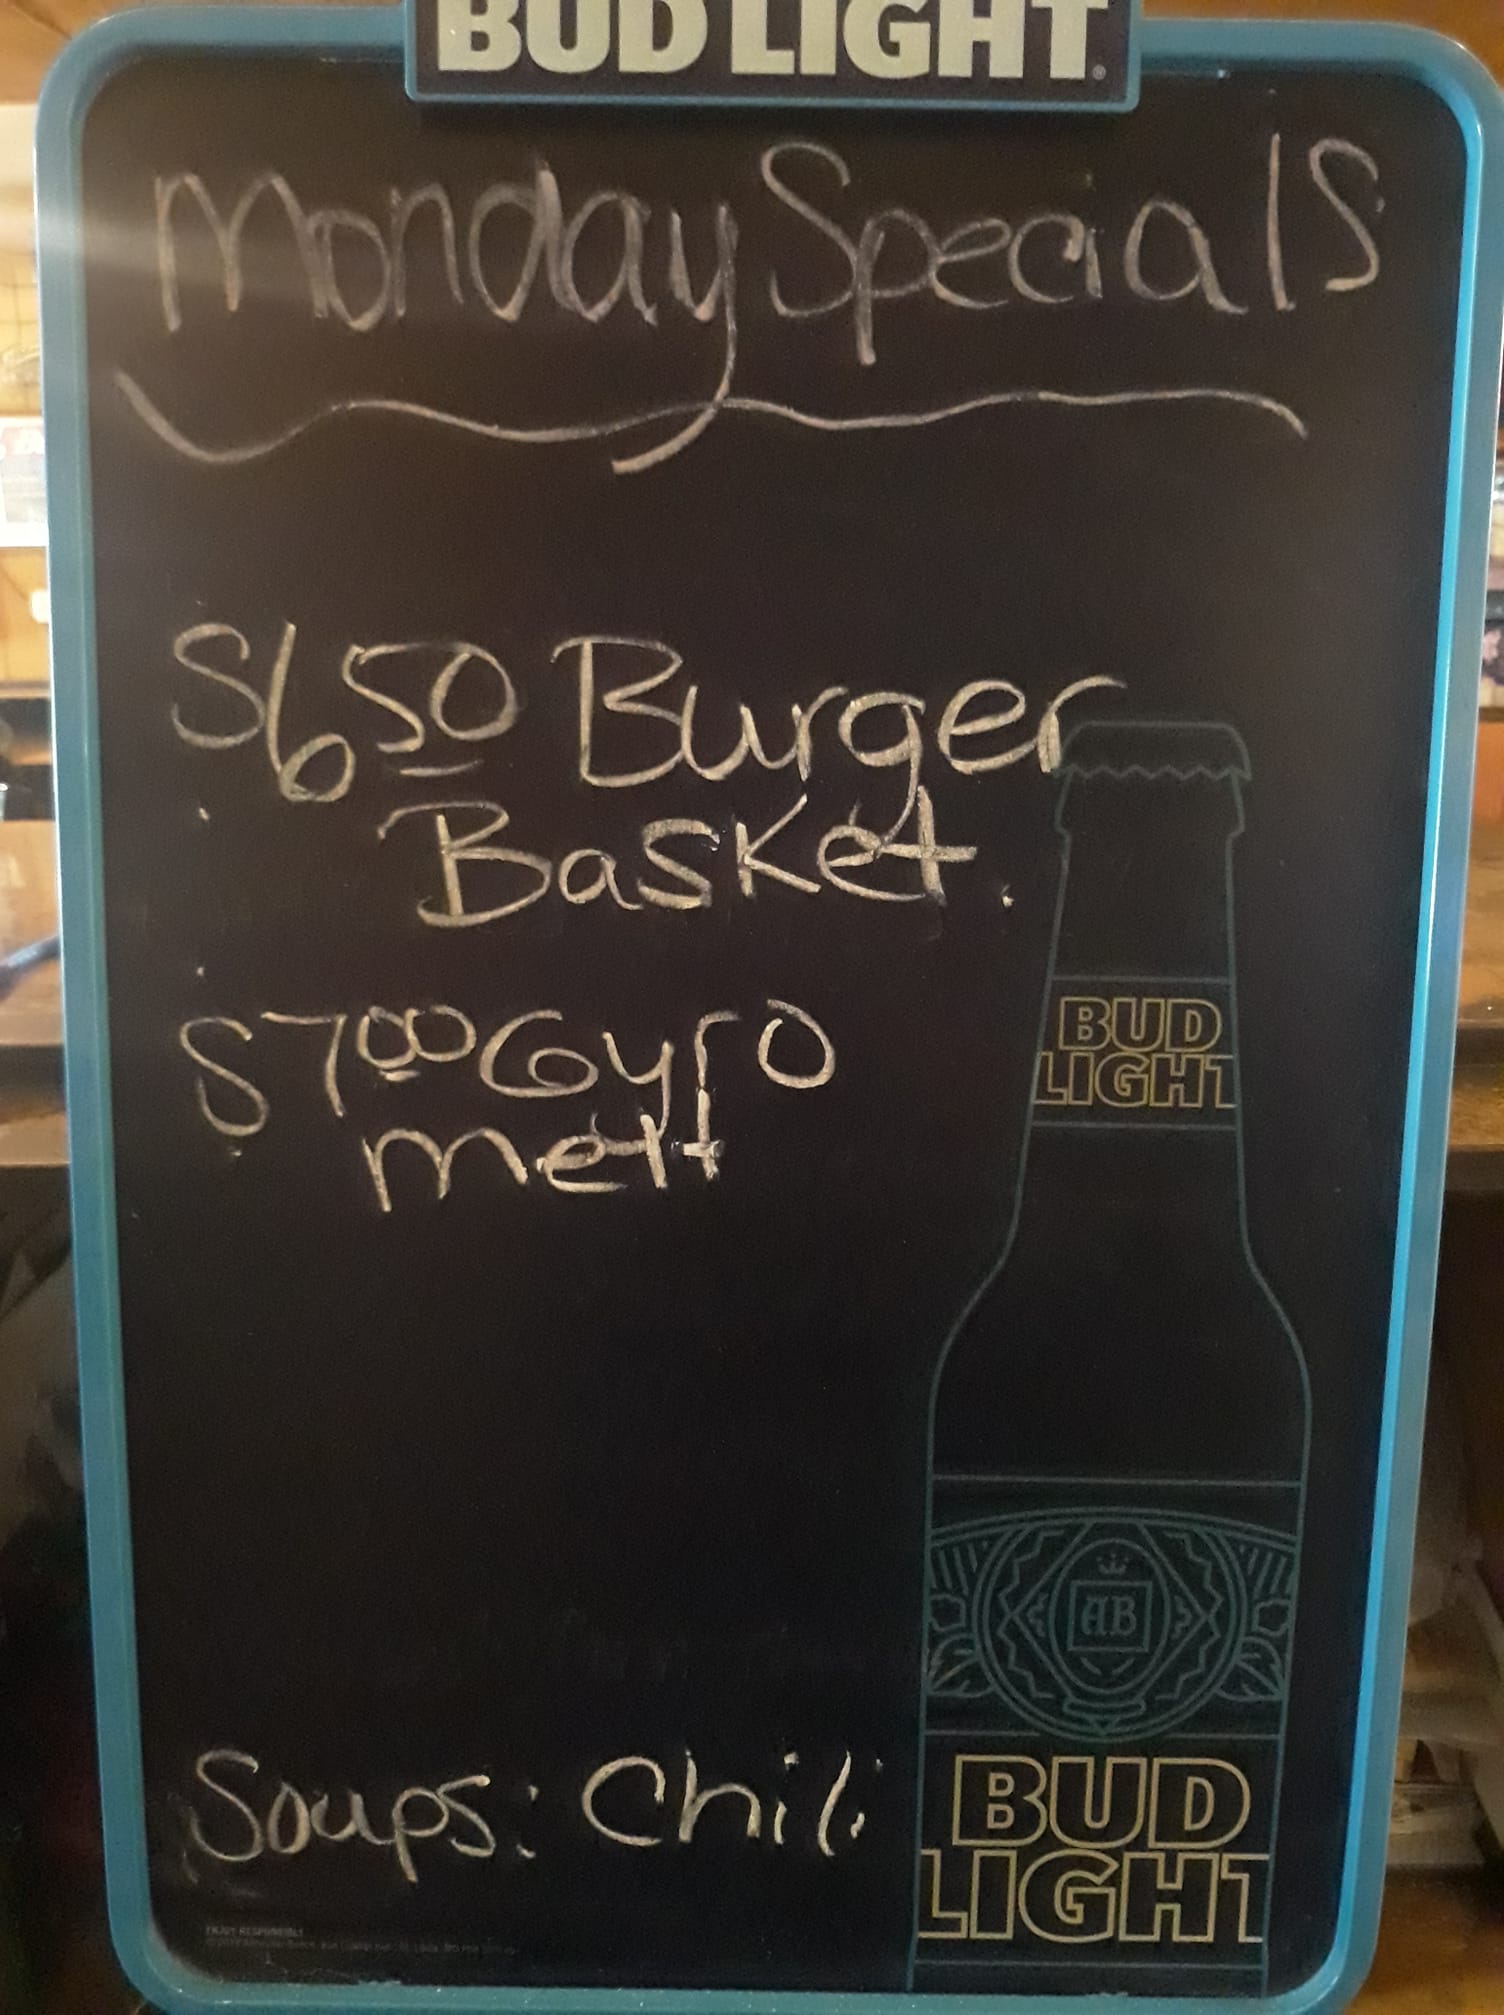 BUD LIGHT®
Monday Specials
$6 50 Burger
Basket
$7 00 Gyro
melt
BUD
LIGHT
AB
Soups: Chili
BUD
LIGHT
ENJOY RESPONSIBLY